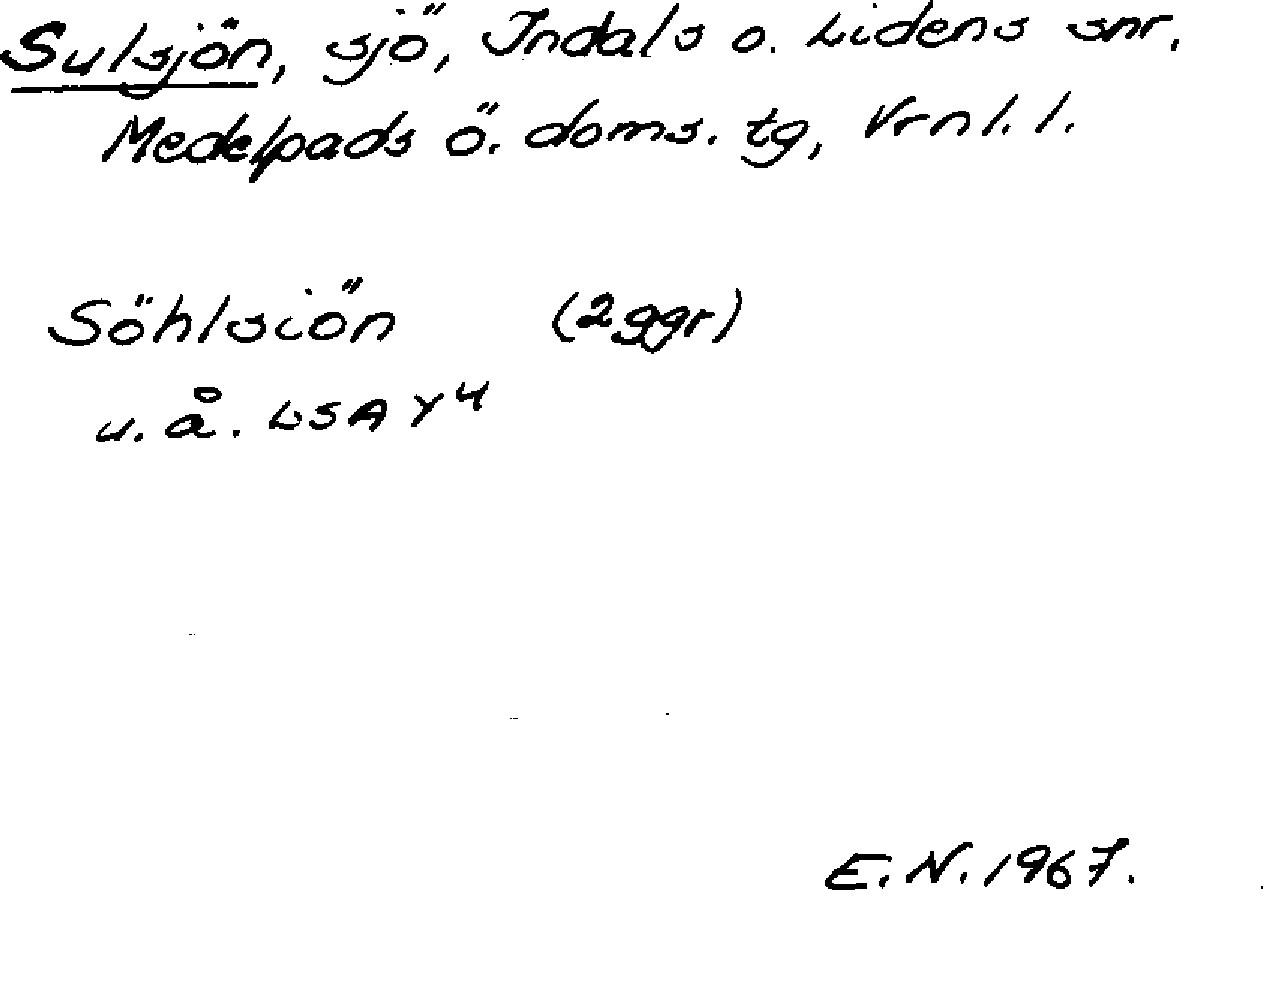 Sulsjön, sjö, Indals o. Lidens snr,
Medelpads ö. doms. tg, Vrnl. l.
Söhlsiön (2ggr)
u. å. LSA Y4
E. N. 1967.